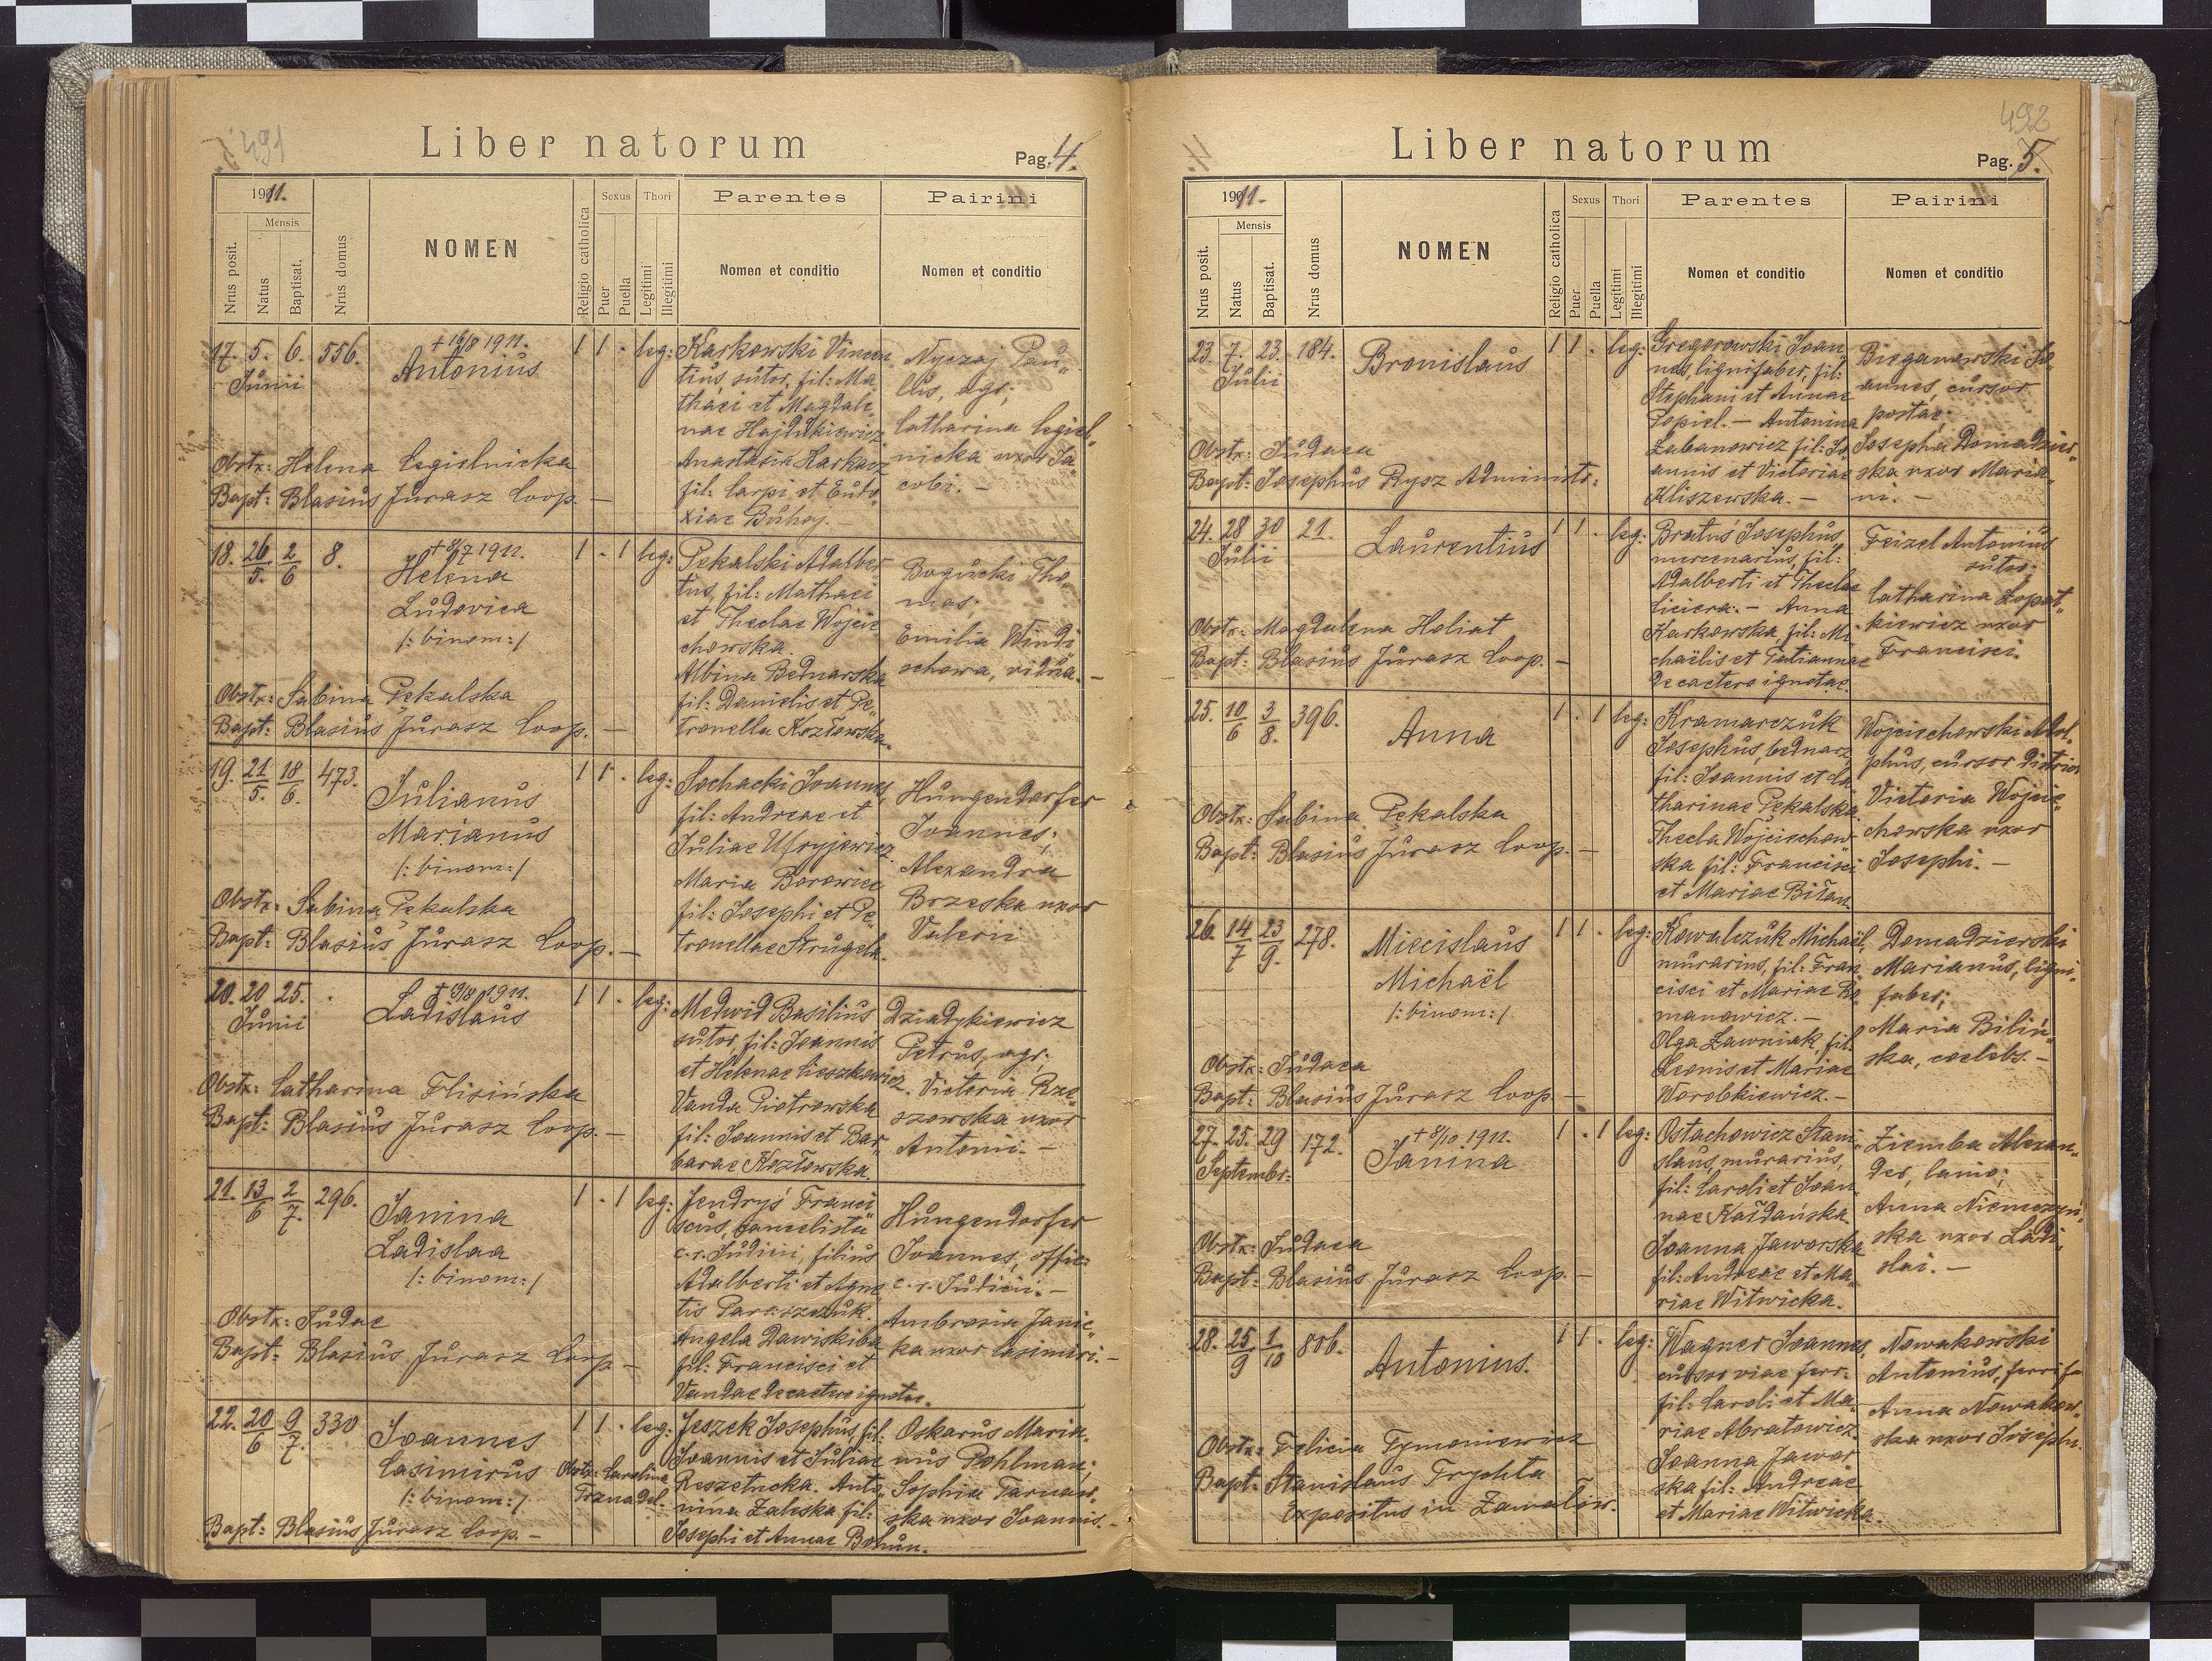 491
Liber natorum
Pag. 4.
1911.
Nrus posit.
Mensis
Natus
Baptisat.
Nrus domus
NOMEN
Religio catholica
Sexus
Puer
Puella
Thori
Legitimi
Illegitimi
Parentes
Nomen et conditio
Pairini
Nomen et conditio
17. 5. 6. 556.
Junii
+ 16/8 1911.
Antonius
1 1 . leg:
Karkowski Vincen„
tius, sutor, fil: Ma„
thaei et Magdale„
nae Hajdukiewicz
Anastasia Karkacz
fil: Carpi et Eudo„
xiae Buhaj.
Nyczaj Pau„
lus, agr;
Catharina Cegiel„
nicka uxor Ja„
cobi. –
Obstx: Helena Cegielnicka
Bapt: Blasius Jurasz Coop. –
18. 26/5. 2/6 8.
+ 8/7 1911.
Helena
Ludovica
/: binom: /
1 . 1 leg:
Pękalski Adalber„
tus, fil: Mathaei
et Theclae Wojcie„
chowska.
Albina Bednarska
fil: Danielis et Pe„
tronella Kozłowska.
Bogucki Tho„
mas;
Emilia Windi„
schowa, vidua. –
Obstx: Sabina Pękalska
Bapt: Blasius Jurasz Coop. –
19. 21/5. 18/6. 473.
Julianus
Marianus
/: binom: /
1 1 . leg:
Sochacki Joannes,
fil: Andreae et
Juliae Ufryjewicz
Maria Borowiec
fil: Josephi et Pe„
tronellae Strugała.
Hungendorfer
Joannes;
Alexandra
Brzeska uxor
Valerii
Obstx: Sabina Pękalska
Bapt: Blasius Jurasz Coop. –
20. 20 25. .
Junii
+ 19/8 1911.
Ladislaus
1 1 . leg:
Medwid Basilius
sutor, fil: Joannis
et Helenae Cieszkowicz.
Vanda Piotrowska
fil: Joannis et Bar„
barae Kozłowska.
Dziadykiewicz
Petrus, agr;
Victoria Rze„
szowska uxor
Antonii. –
Obstx: Catharina Flisińska
Bapt: Blasius Jurasz Coop. –
21. 13/6 2/7. 296.
Janina
Ladislaa
/: binom: /
1 . 1 leg:
Jendryś Franci„
scus, cancelista
c. r. Judicii, filius
Adalberti et Agne„
tis Paraszczuk.
Angela Dawiskiba
fil: Francisci et
Vandae de caetero ignotae.
Hungendorfer
Joannes, offic:
c. r. Judicii. –
Ambrosia Janic„
ka uxor Casimiri. –
Obstx: Judae
Bapt: Blasius Jurasz Coop. –
22. 20/6 9/7. 330
Joannes
Casimirus
/: binom: /
Obstx: Carolina
Trznadel.
1 1 . leg:
Jeszek Josephus, fil:
Joannis et Juliae
Reszetucka. Anto„
nina Zaleska fil:
Josephi et Annae Bohun.
Oskarus Maria„
nus Pohlman;
Sophia Tarnaw„
ska uxor Joannis. –
Bapt: Blasius Jurasz Coop. –
492
Liber natorum
Pag. 5.
1911.
Nrus posit.
Mensis
Natus
Baptisat.
Nrus domus
NOMEN
Religio catholica
Sexus
Puer
Puella
Thori
Legitimi
Illegitimi
Parentes
Nomen et conditio
Pairini
Nomen et conditio
23. 7. 23. 184.
Julii
Bronislaus
1 1 . leg:
Gregorowski Joan„
nes, lignifaber, fil:
Stephani et Annae
Popiel. – Antonina
Labanowicz fil: Jo„
annis et Victoriae
Kliszewska. –
Bieganowski Jo„
annes, cursor
postae;
Josepha Domadzier„
ska uxor Maria„
ni. –
Obstx: Judaea
Bapt: Josephus Rysz Administr:
24. 28 30 21.
Julii
Laurentius
1 1 . leg:
Bratus Josephus,
mercenarius, fil:
Adalberti et Theclae
Ciciera. – Anna
Karkowska, fil: Mi„
chaëlis et Tatiannae
de caetero ignotae.
Feizel Antonius
sutor;
Catharina Lopat„
kiewicz uxor
Francisci.
Obstx: Magdalena Heliat
Bapt: Blasius Jurasz Coop. –
25. 10/6 3/8. 396.
Anna
1 . 1 leg:
Kramarczuk
Josephus, bednarz,
fil: Joannis et Ca„
tharinae Pękalska
Thecla Wojciechow„
ska fil: Francisci
et Mariae Bilan.
Wojciechowski Adol„
phus, cursor
Victoria Wojcie„
chowska uxor
Josephi. –
Obstx: Sabina Pękalska
Bapt: Blasius Jurasz Coop. –
26. 14/7 23/9. 278.
Miecislaus
Michaël
/: binom: /
1 1 . leg:
Kowalczuk Michaël,
murarius, fil: Fran„
cisci et Mariae Ro„
manowicz. –
Olga Ławniak, fil:
Leonis et Mariae
Worobkiewicz. –
Domadzierski
Marianus, ligni„
faber;
Maria Biliń„
ska, coelebs. –
Obstx: Judaea
Bapt: Blasius Jurasz Coop –
27. 25. 29 172.
Septembr:
+ 8/10 1911.
Janina
1 . 1 leg:
Ostachowicz Stani„
slaus, murarius,
fil: Caroli et Joan„
nae Każdańska
Joanna Jaworska
fil: Andreae et Ma„
riae Witwicka.
Ziemba Alexan„
der, lanio;
Anna Niemczyń„
ska uxor Ladi„
slai. –
Obstx: Judaea
Bapt: Blasius Jurasz Coop. –
28. 25/9 1/10 806.
Antonius.
1 1 . leg:
Wagner Joannes,
cursor viae ferr:
fil: Caroli et Ma„
riae Abratowicz.
Joanna Jawor„
ska fil: Andreae
et Mariae Witwicka.
Nowakowski
Antonius, ferrifa
Anna Nowakow„
ska uxor Josephi.
Obstx: Felicia Tymoniewicz
Bapt: Stanislaus Trychta
Expositus in Zawalów.